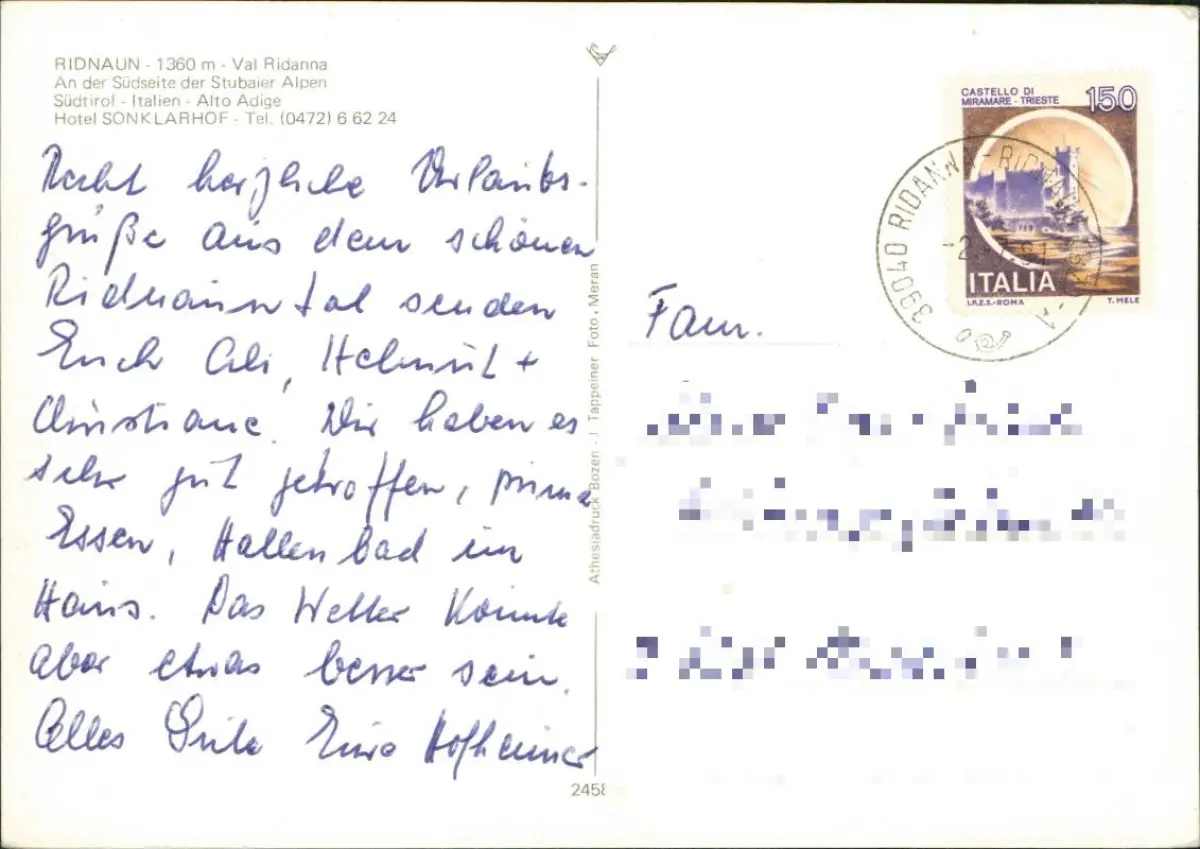 RIDNAUN - 1360 m - Val Ridanna
An der Südseite der Stubaier Alpen
Südtirol - Italien - Alto Adige
Hotel SONKLARHOF - Tel. (0472) 6 62 24
Recht herzliche Urlaubs-
grüße aus dem schönen
Ridnauntal senden
Euch Uli, Helmut +
Christiane. Wir haben es
sehr gut getroffen, prima
Essen, Hallenbad im
Haus. Das Wetter könnte
aber etwas besser sein.
Alles Gute Eure Hofheimer
2458
Athesiadruck Bozen - J. Tappeiner Foto, Meran
CASTELLO DI
MIRAMARE - TRIESTE
150
ITALIA
I.P.Z.S. - ROMA
T. MELE
39040 RIDANNA - RIDNAUN
Fam.